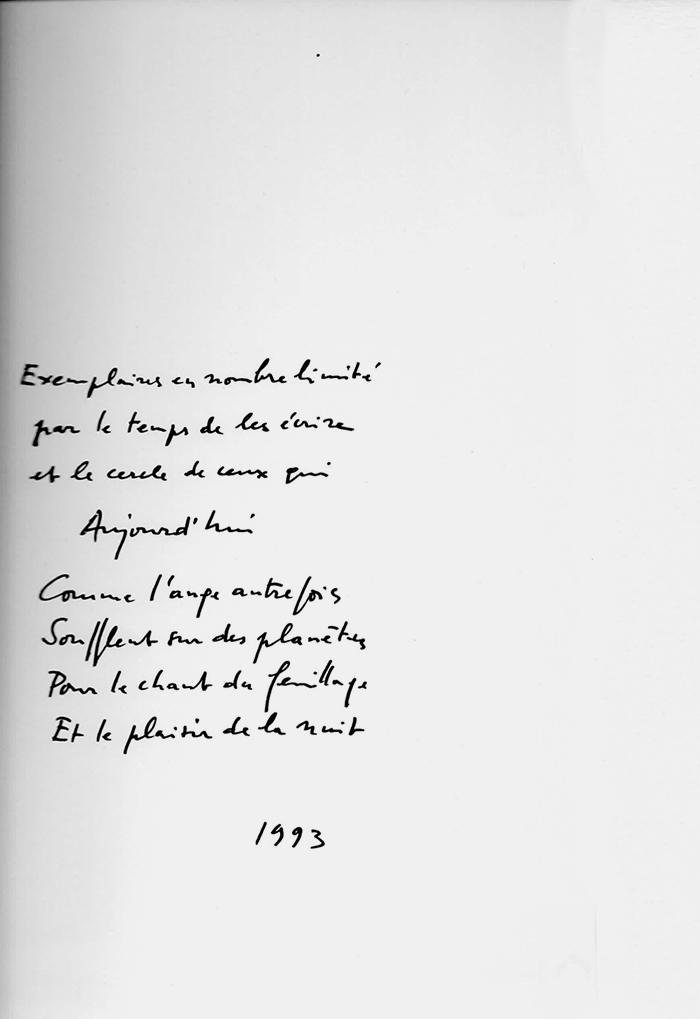 Exemplaires en nombre limité
par le temps de les écrire
et le cercle de ceux qui
Aujourd'hui
Comme l'ange autrefois
Soufflent sur des planètes
Pour le chant du feuillage
Et le plaisir de la nuit
1993